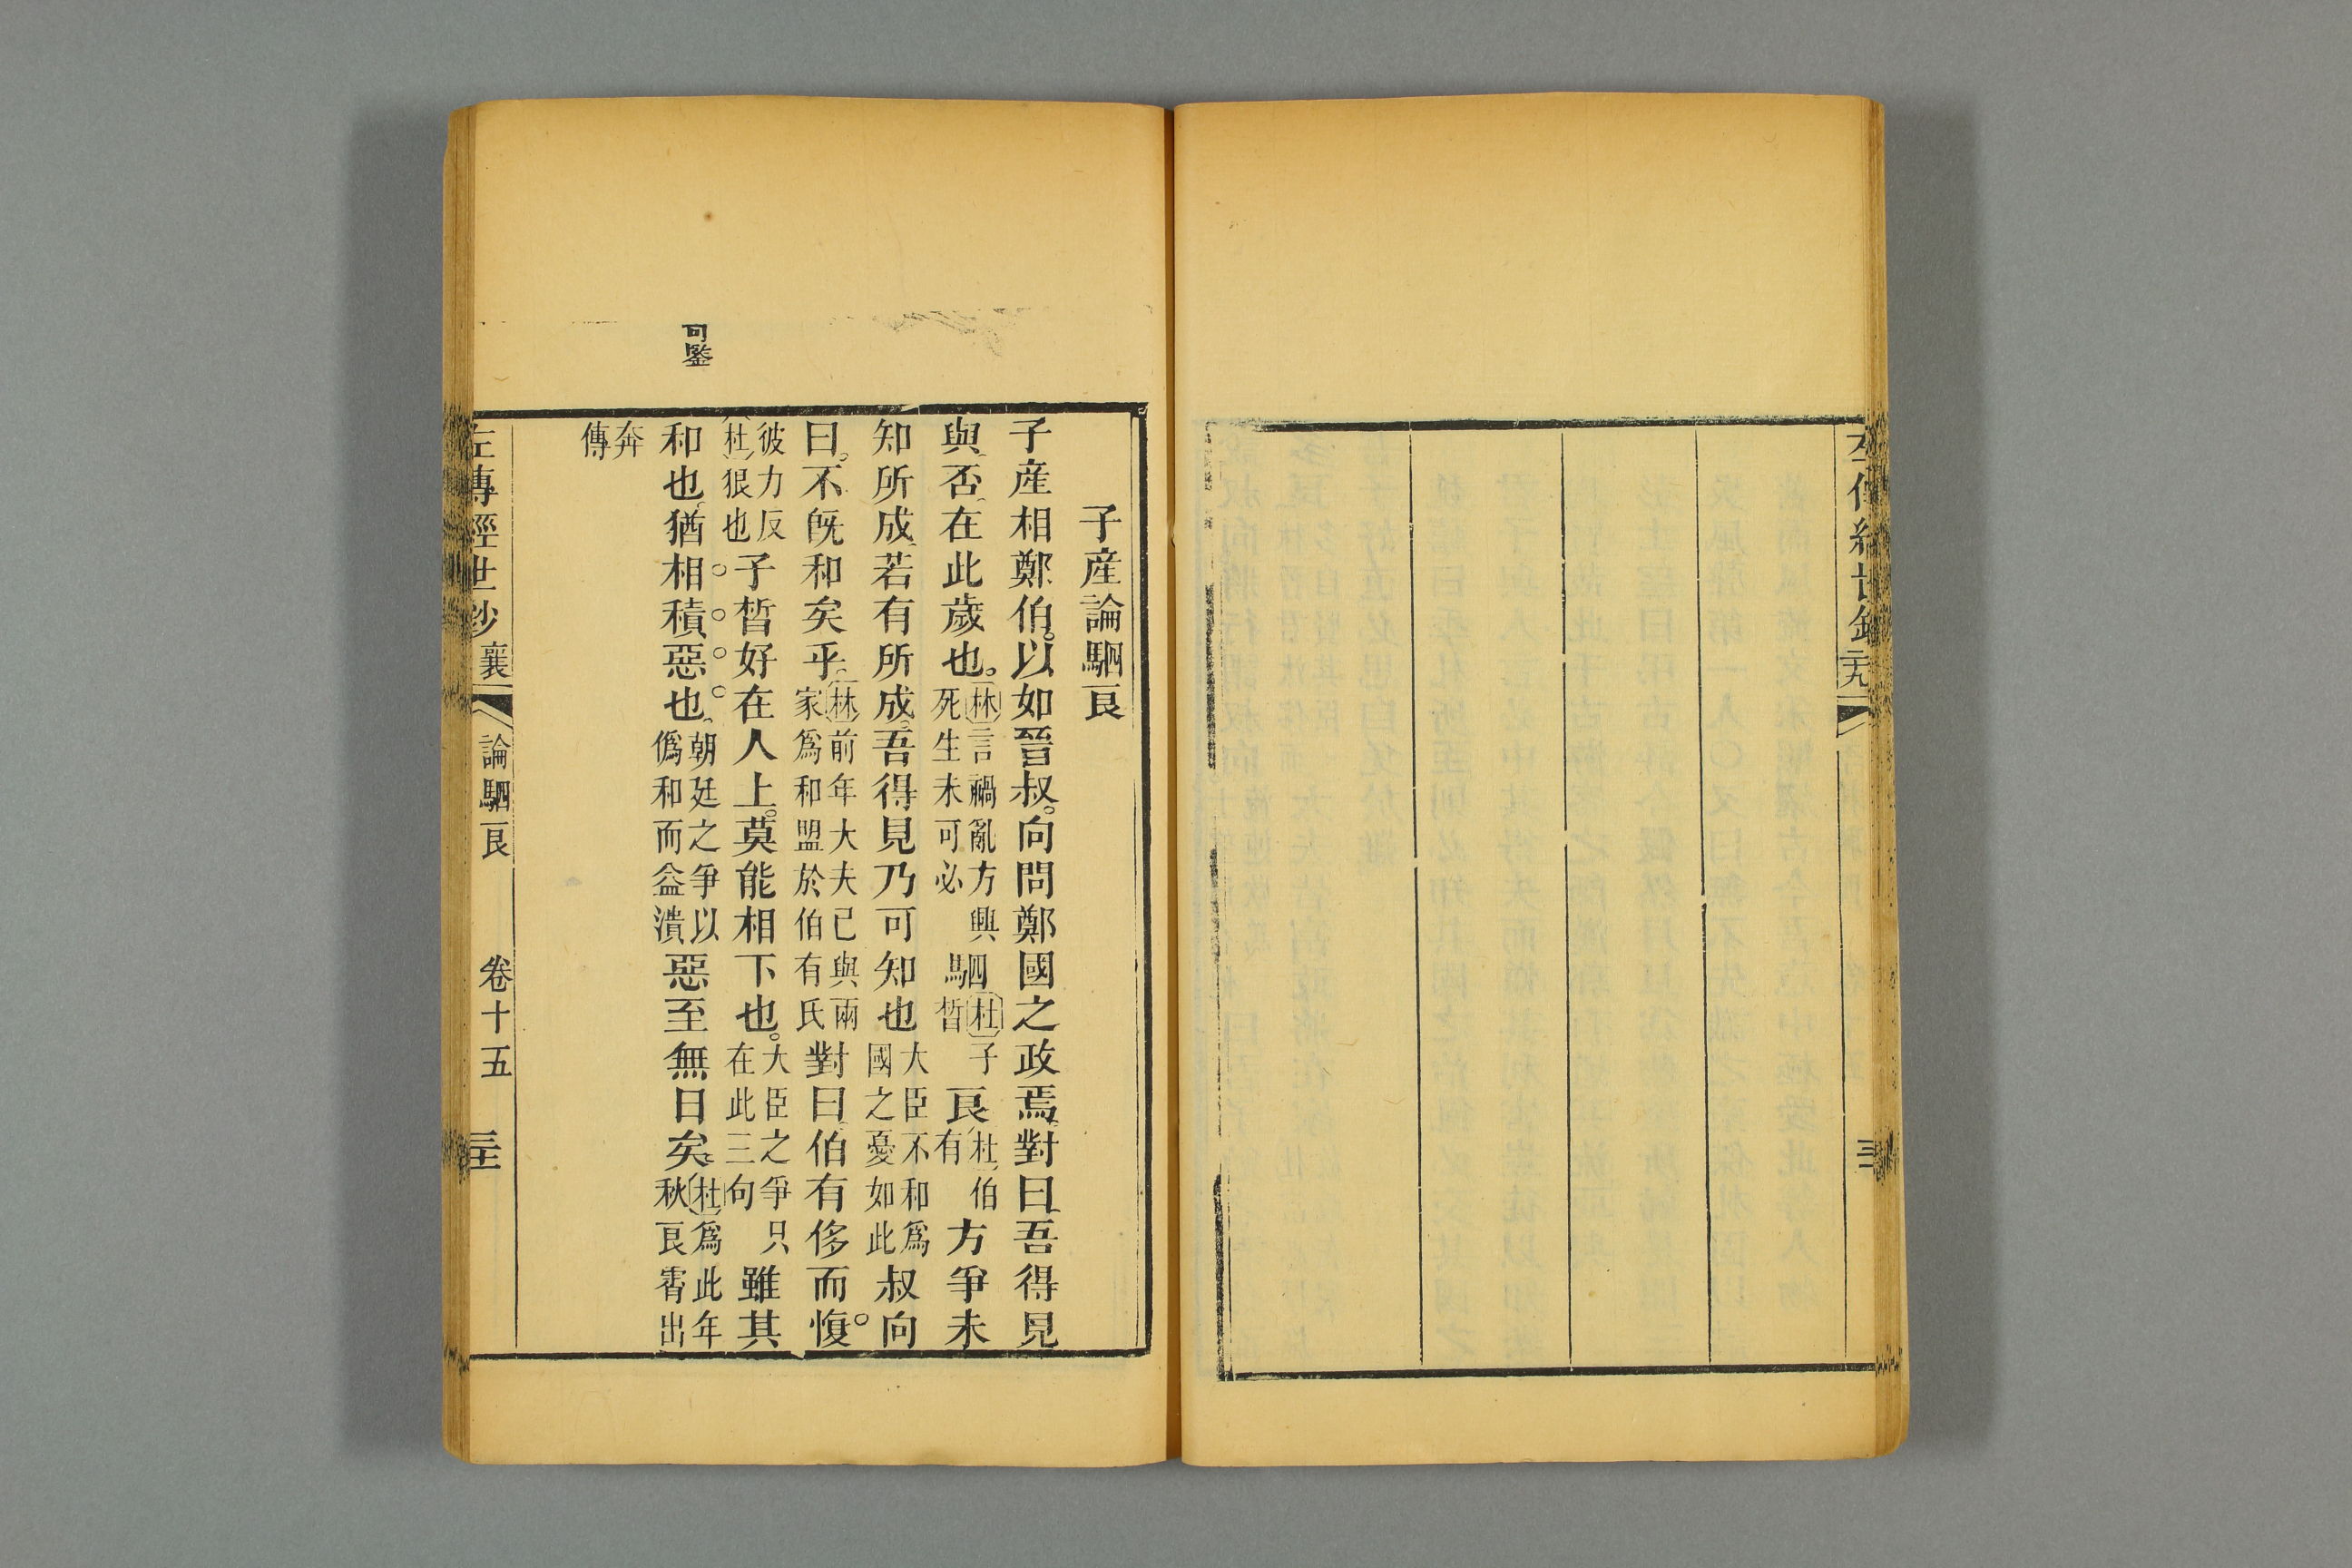 子産論駟良
子産相鄭伯以如晉叔向問鄭國之政焉對曰吾得見
與否在此歲也林言禍亂方興死生未可必駟杜子晳良杜伯有方爭未
知所成若有所成吾得見乃可知也大臣不和爲國之憂如此叔向
曰不旣和矣乎林前年大夫已與兩家爲和盟於伯有氏對曰伯有侈而愎
彼力反杜狠也子晳好在人上莫能相下也大臣之爭只在此三句雖其
和也猶相積惡也朝廷之爭以僞和而益潰惡至無日矣杜爲此年秋良霄出
奔傳
可鑒
左傳經世鈔 襄 論駟良 卷十五